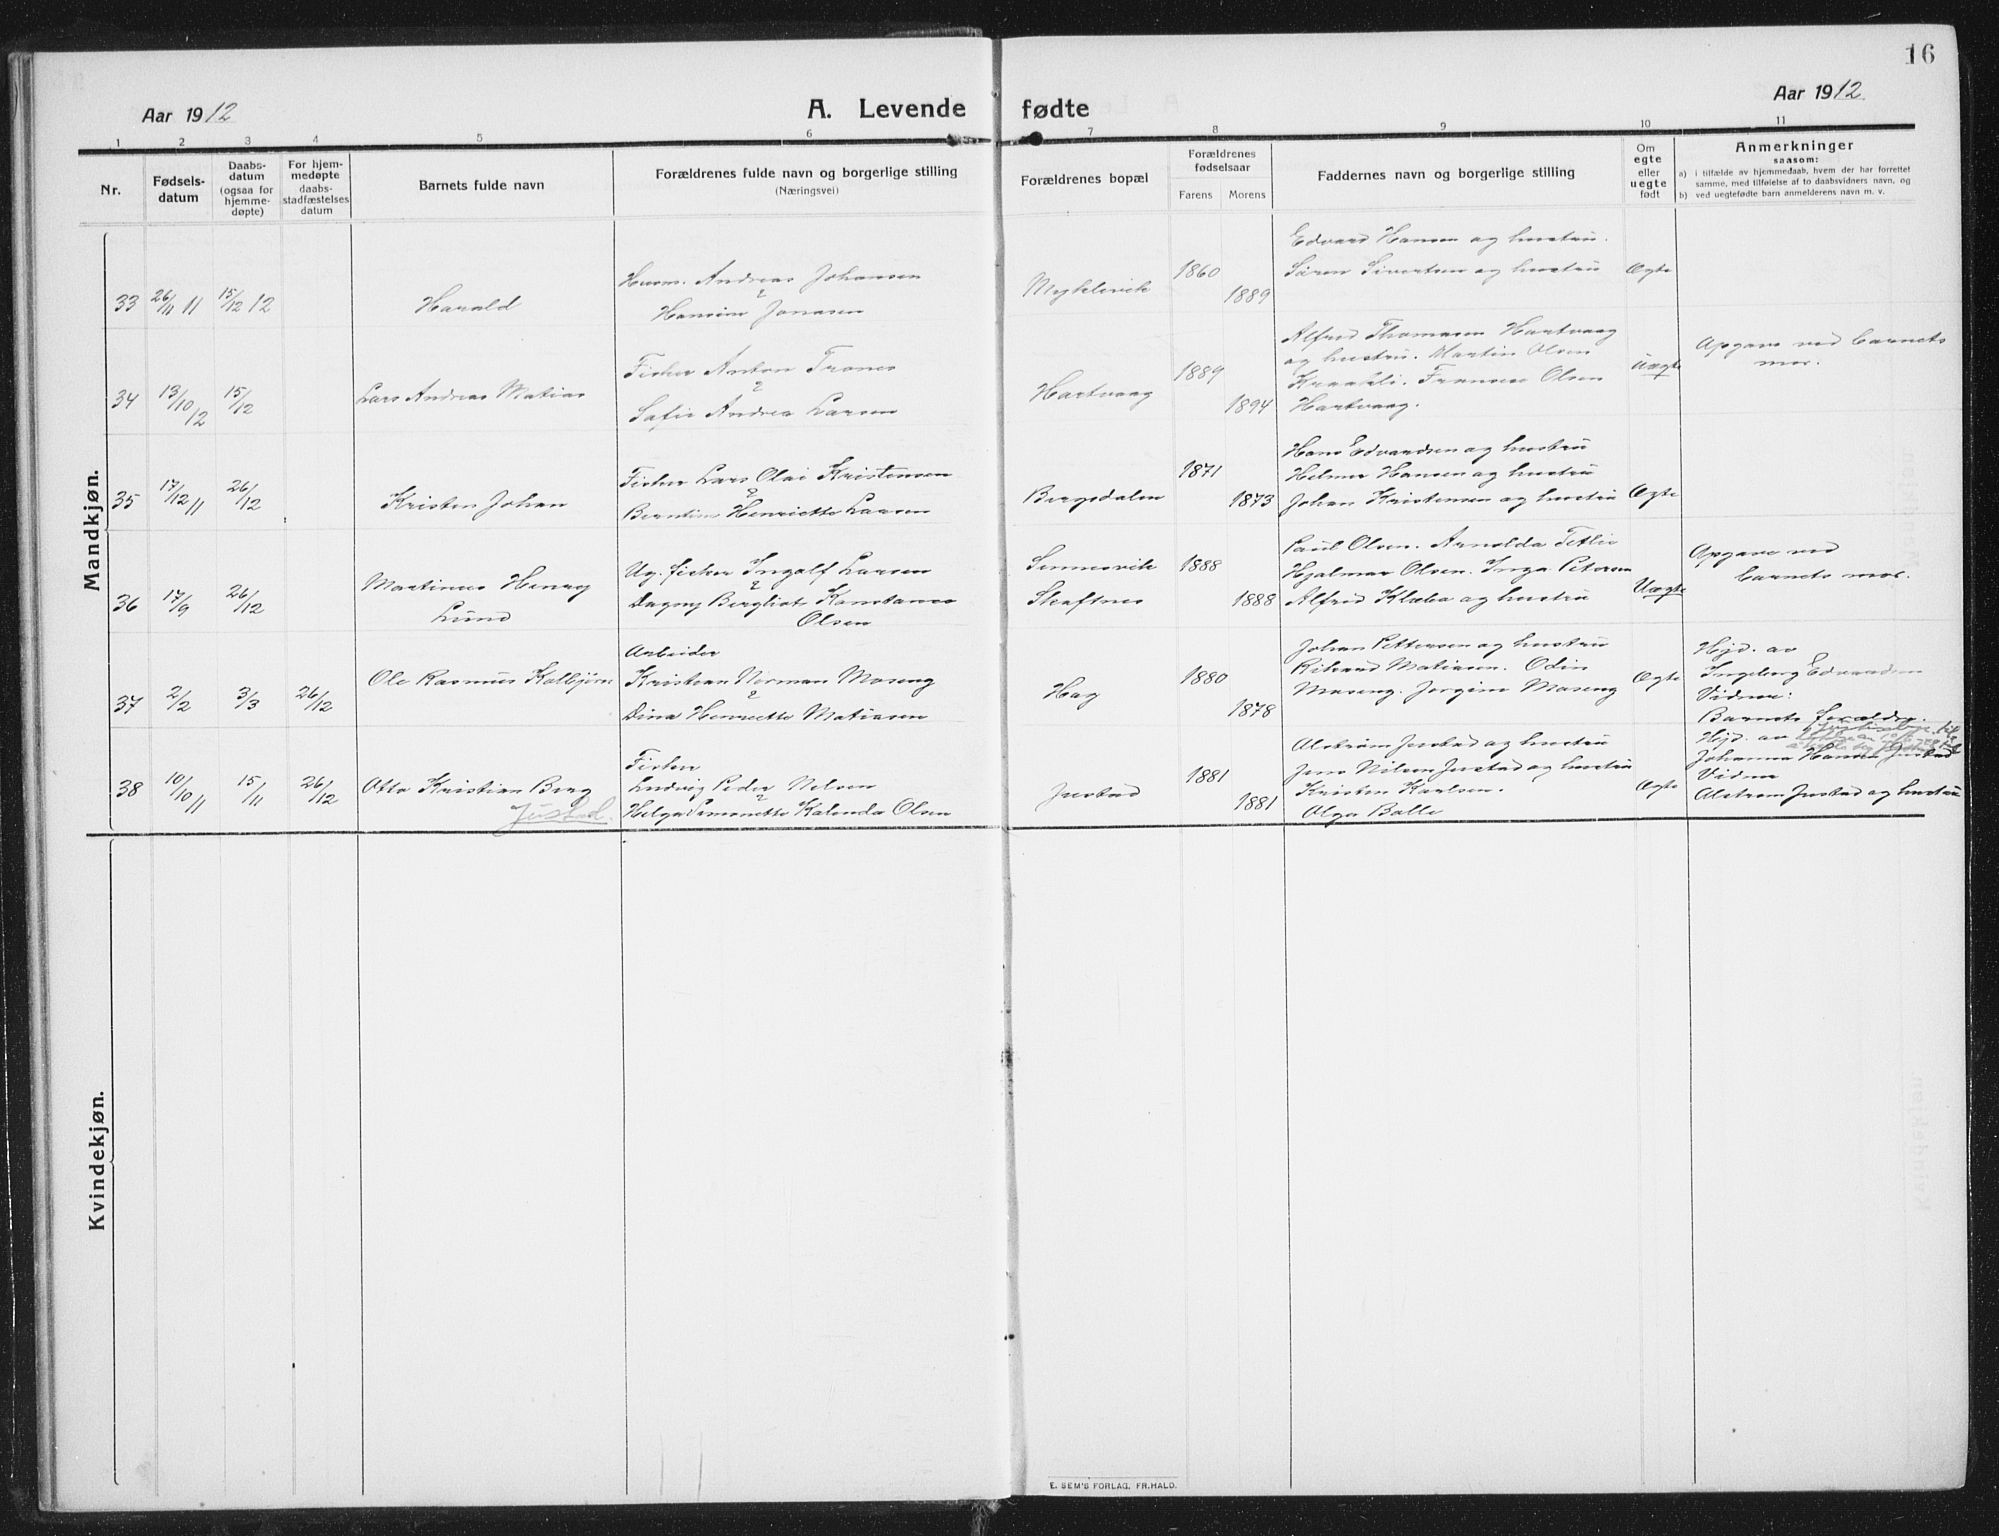 16
Aar 1912
A. Levende fødte
Aar 1912
1 2 3 4 5 6 7 8 9 10 11
Nr.
Fødsels-
datum
Daabs-
datum
(ogsaa for
hjemme-
døpte)
For hjem-
medøpte
daabs-
stadfæstelses
datum
Barnets fulde navn
Forældrenes fulde navn og borgerlige stilling
(Næringsvei)
Forældrenes bopæl
Forældrenes
fødselsaar
Farens Morens
Faddernes navn og borgerlige stilling
Om
egte
eller
uegte
født
Anmerkninger
saasom:
a) i tilfælde av hjemmedaab, hvem der har forrettet
samme, med tilføielse af to daabsvidners navn, og
b) ved uegtefødte barn anmelderens navn m. v.
Mandkjøn.
33 26/11 11 15/12 12 Harald
Husm. Andreas Johansen
Hansine Jonasen
Myklevik 1860 1889
Edvard Hansen og hustru.
Sören Sivertsen og hustru
Ægte
34 13/10 12 15/12 Lars Andreas Matias
Fisker Anton Trones
Sofie Andrea Larsen
Hartvaag 1889 1894
Alfred Thomasen Hartvaag
og hustru. Martin Olsen
Kraakli. Olsen
Hartvaag.
Uægte
Opgave ved barnets
mor.
35 17/12 11 26/12 Kristen Johan
Fisker Lars Olai Kristensen
Berntine Henriette Larsen
Bergsdalen 1871 1873
Hans Edvardsen og hustru
Helmer Hansen og hustru
Johan Kristensen og hustru
Ægte
36 17/9 26/12 Martinus Henry
Lund
Ug. fisker Ingolf Larsen
Dagny Bergliot Konstance
Olsen
Sennesvik
Skaftnes
1888 1888
Paul Olsen. Arnolda Tetlie
Hjalmar Olsen. Inga Petersen
Alfred Klæbo og hustru
Uægte
Opgave ved
barnets mor.
37 2/2 3/3 26/12 Ole Rasmus Kolbjørn
Arbeider
Kristian Norman Moseng
Dina Henriette Matiasen
Hag 1880 1878
Johan Pettersen og hustru
Rikard Matiasen. Odin
Moseng. Jørgine Moseng
Ægte
Hjd. av
Ingeborg Edvardsen
Vidner:
Barnets forældre.
38 10/10 11 15/11 26/12 Otto Kristian Berg
Justad.
Fisker
Ludvig Peder Nelsen
Helga Simonette Kalenda Olsen
Justad 1881 1881
Alstrøm Justad og hustru
Jens Nilsen Justad og hustru
Kristen Karlsen.
Olga Balle
Ægte
Hjd. av
Johanna Hansen Justad
Vidner
Alstrøm Justad og hustru
Kvindekjøn.
E. SEM'S FORLAG, FR.HALD.